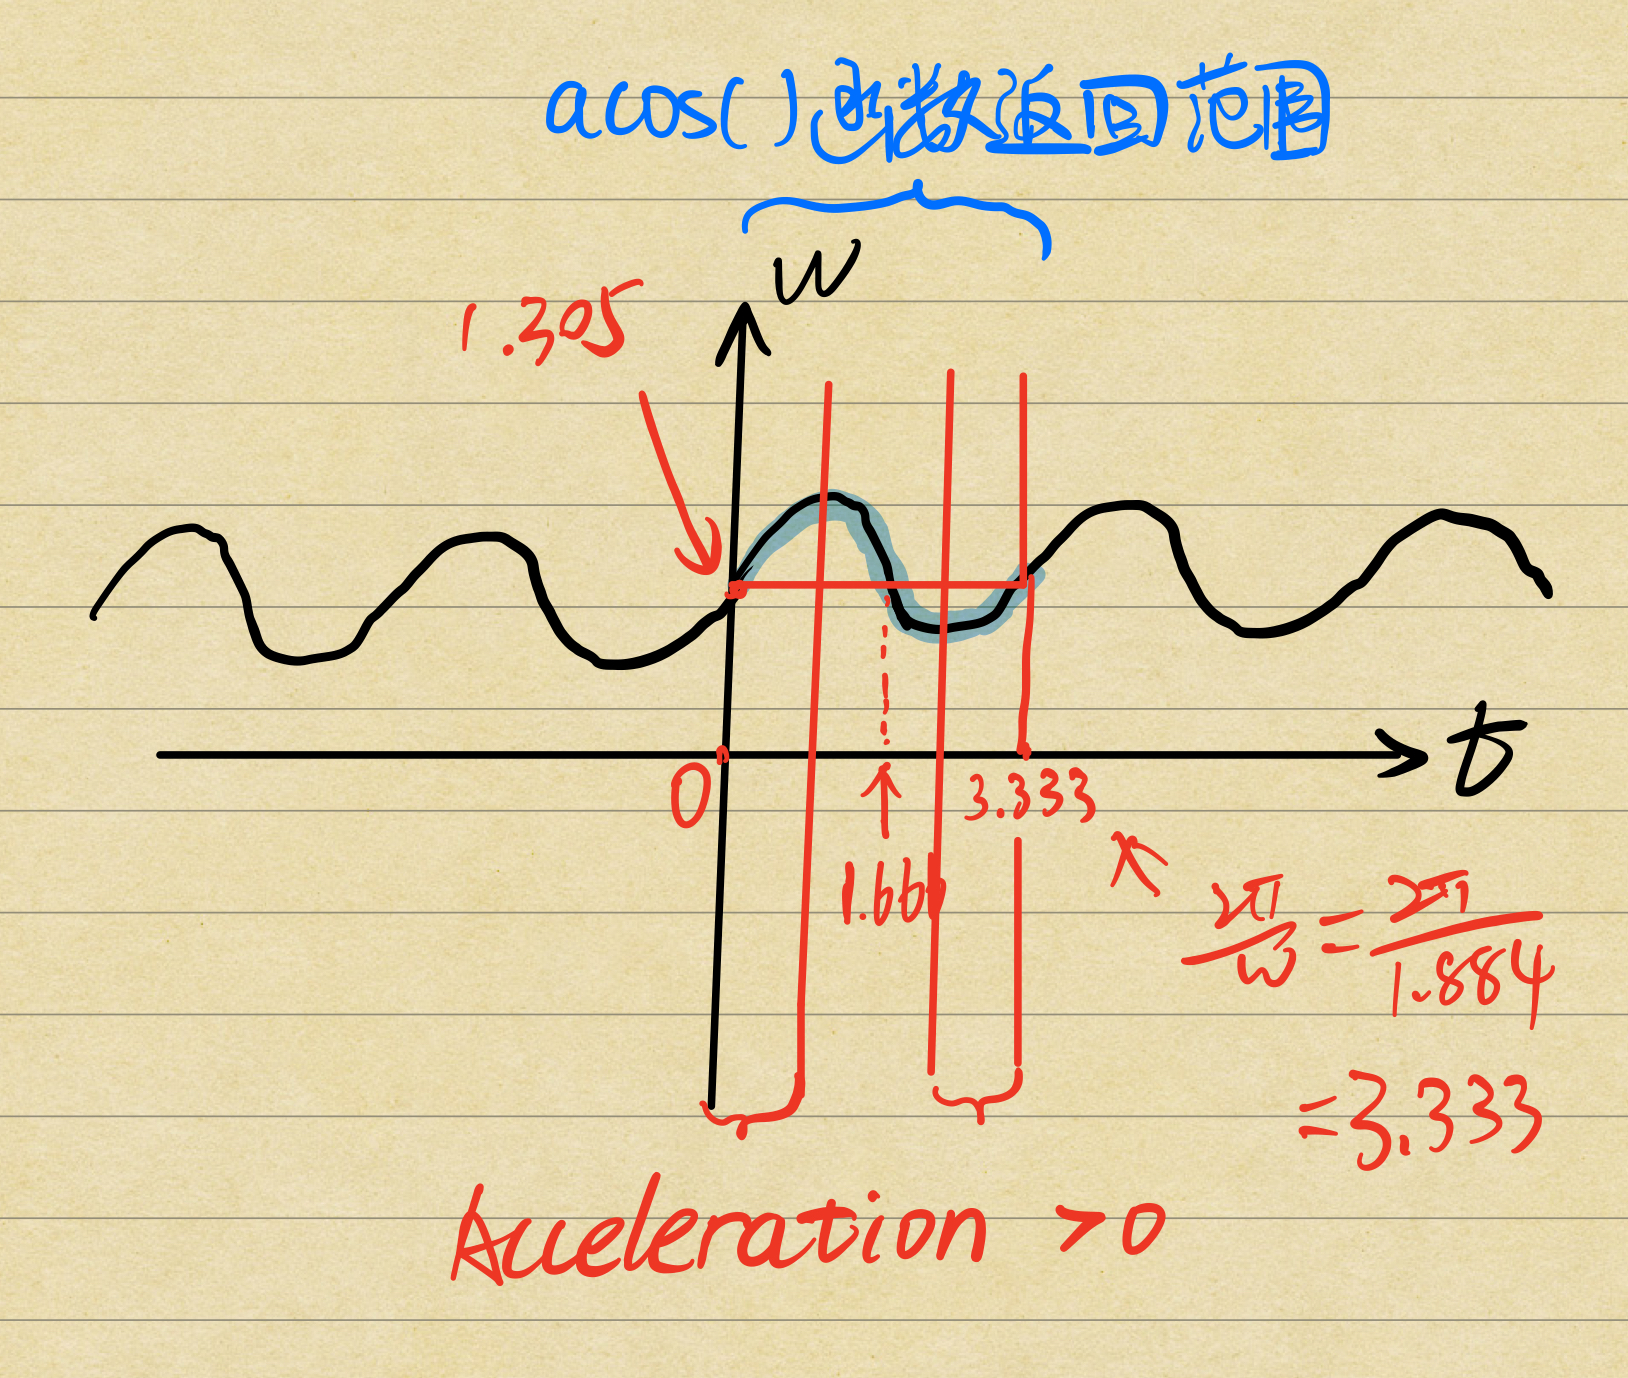 acos()函数返回范围
w
1.305
t
0
3.333
1.666
2π/w = 2π/1.884
=3.333
Acceleration >0